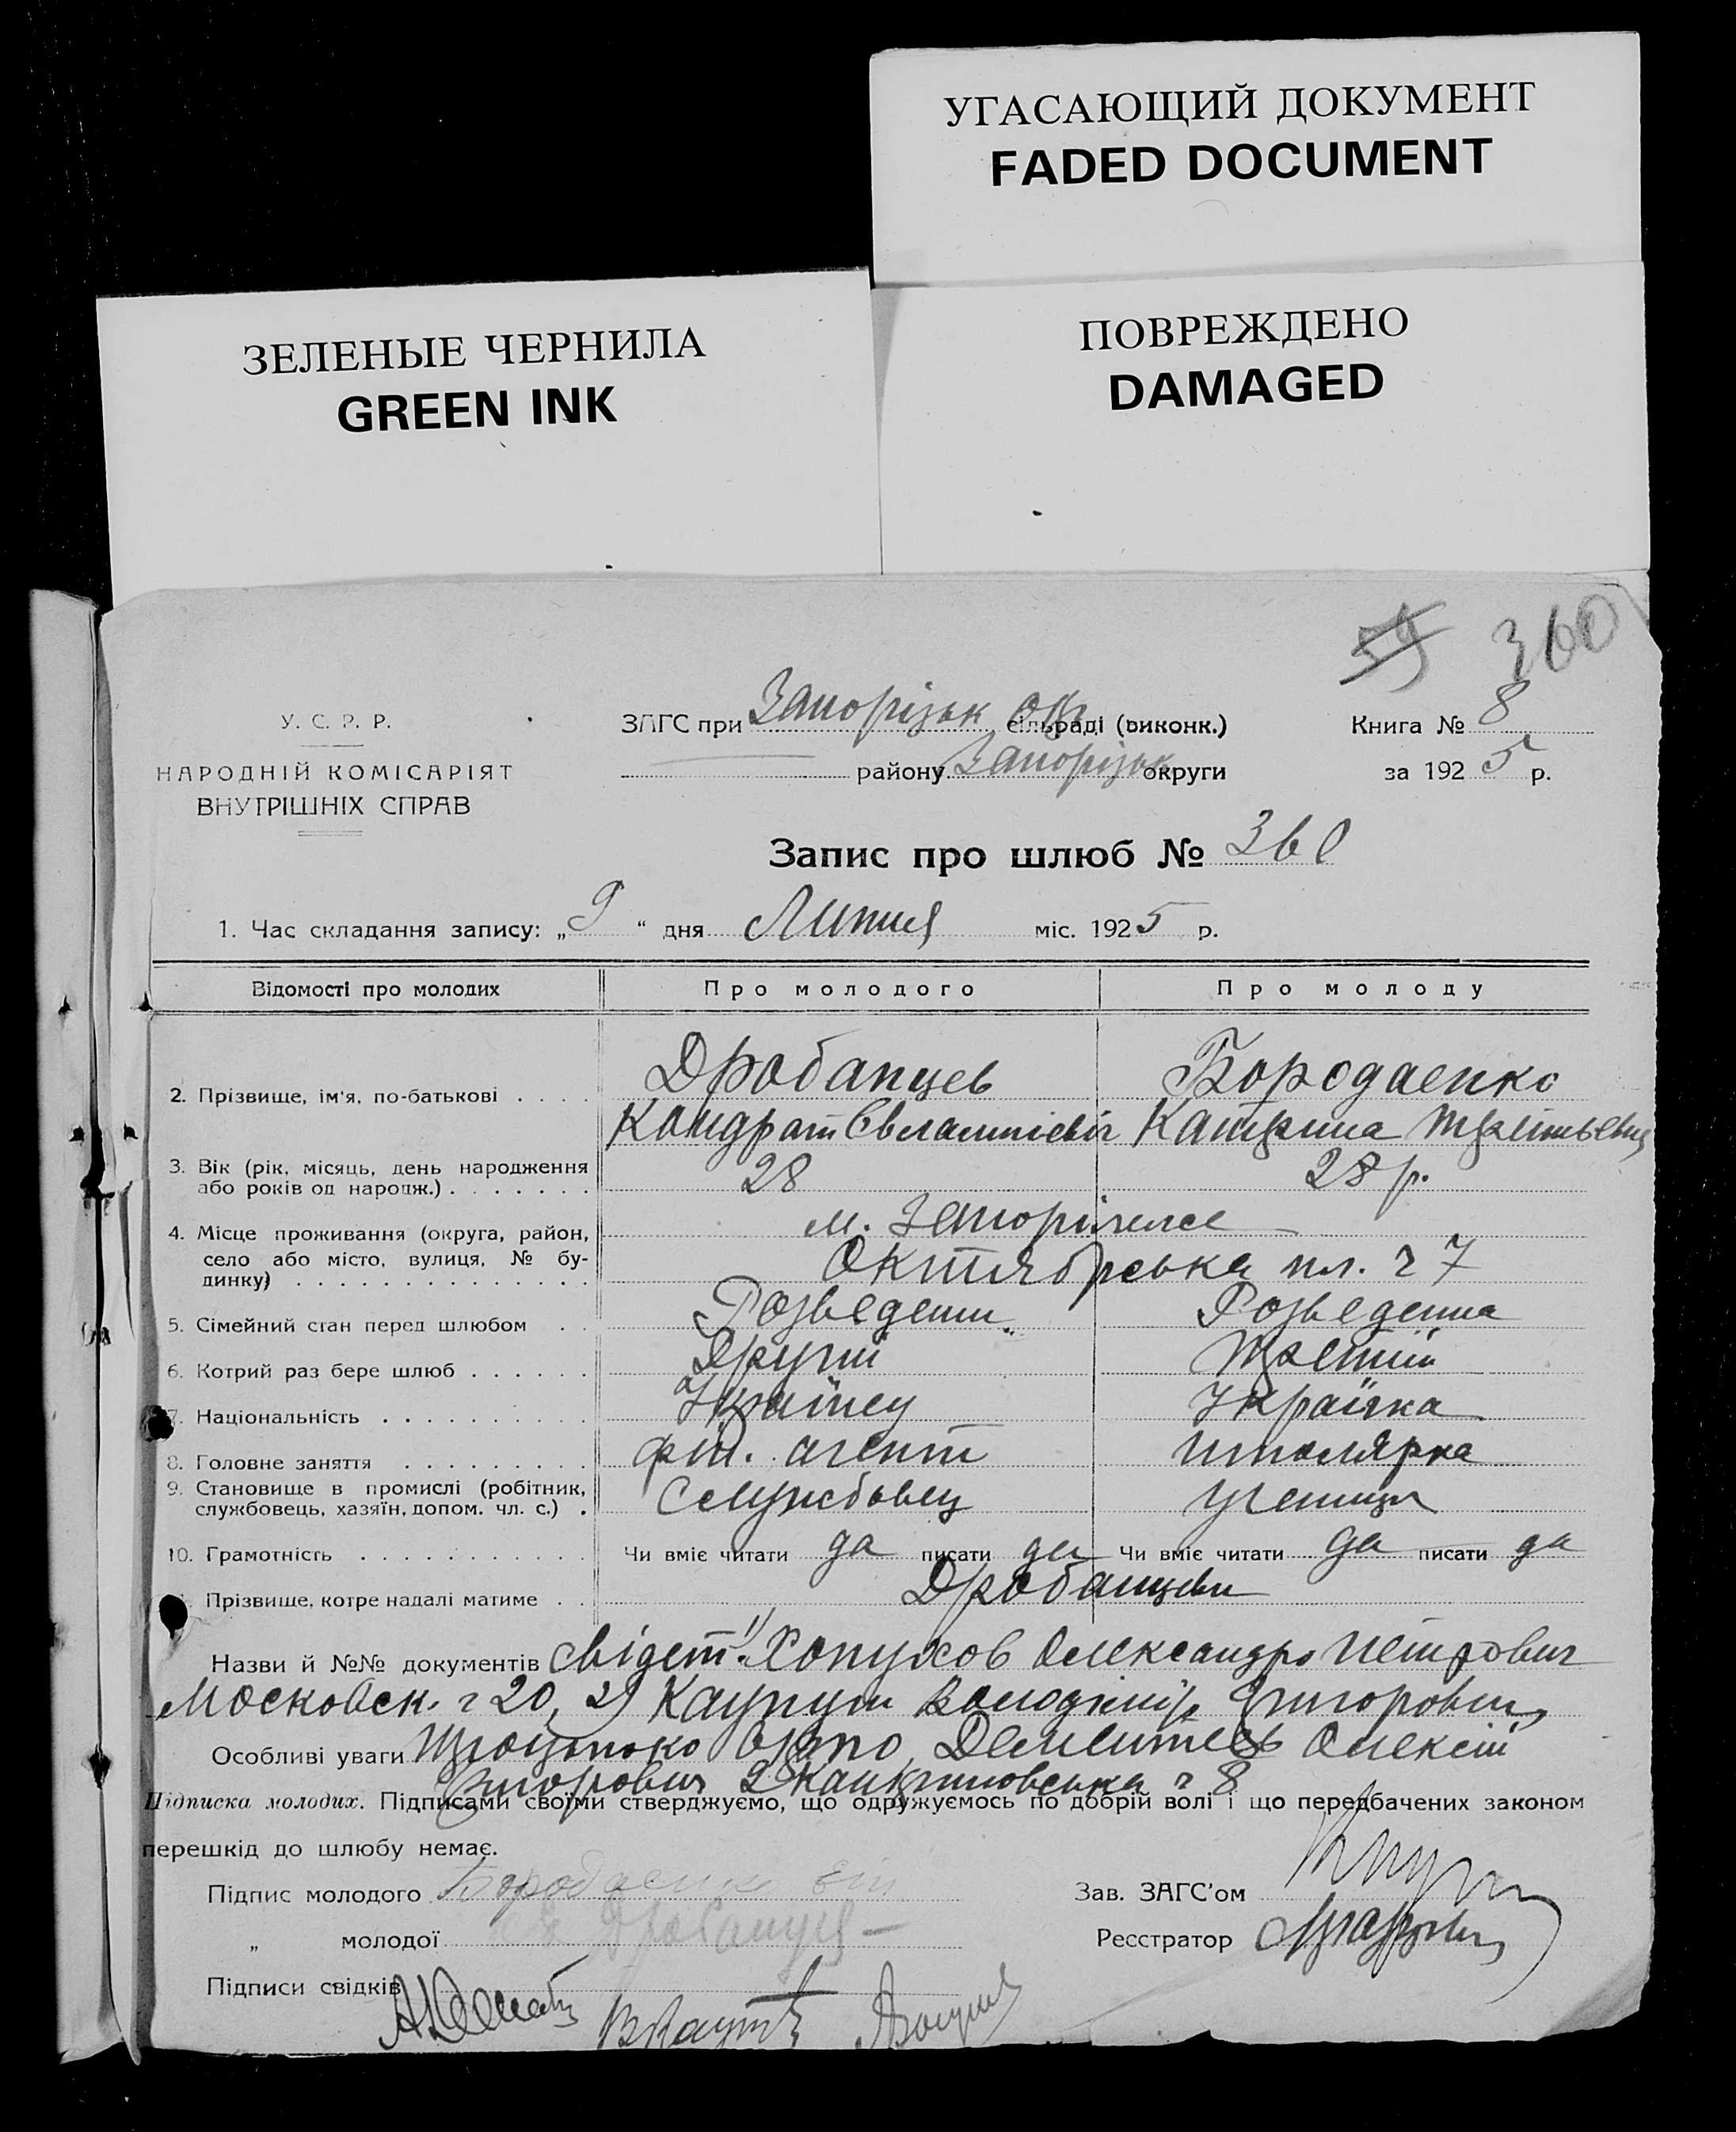 УГАСАЮЩИЙ ДОКУМЕНТ
FADED DOCUMENT
ЗЕЛЕНЫЕ ЧЕРНИЛА
GREEN INK
ПОВРЕЖДЕНО
DAMAGED
59 360
У. С. Р. Р.
НАРОДНІЙ КОМІСАРІЯТ
ВНУТРІШНІХ СПРАВ
ЗАГС при Запорізьк окр. сільраді (виконк.)
району Запорізьк округи
Книга № 8
за 1925 р.
Запис про шлюб № 360
1. Час складання запису: „9“ дня Липня міс. 1925 р.
Відомості про молодих Про молодого Про молоду
2. Прізвище, ім'я, по-батькові Дробанцев Бородаенко
Кондрат Євлампієвіч Катерина
3. Вік (рік, місяць, день народження або років од народж.) 28 28 р.
4. Місце проживання (округа, район, село або місто, вулиця, № будинку) м. Запоріжжа
Октябрська пл. ч 7
5. Сімейний стан перед шлюбом Розведени Розведенна
6. Котрий раз бере шлюб Другий Третий
7. Національність Українец Українка
8. Головне заняття фін. агент
9. Становище в промислі (робітник, службовець, хазяїн, допом. чл. с.) Службовец учениця
10. Грамотність Чи вміє читати да писати да Чи вміє читати да писати да
Прізвище, котре надалі матиме Дробанцеви
Назви й №№ документів свідет. 1) Олександр Петрович
Московск. ч 20, 2) Володимір Григорович
Особливі уваги Олексій
Григорович ч 8
Підписка молодих. Підписами своїми стверджуємо, що одружуємось по добрій волі і що передбачених законом
перешкід до шлюбу немає.
Підпис молодого
„ молодої
Підписи свідків
Зав. ЗАГС'ом
Ресстратор